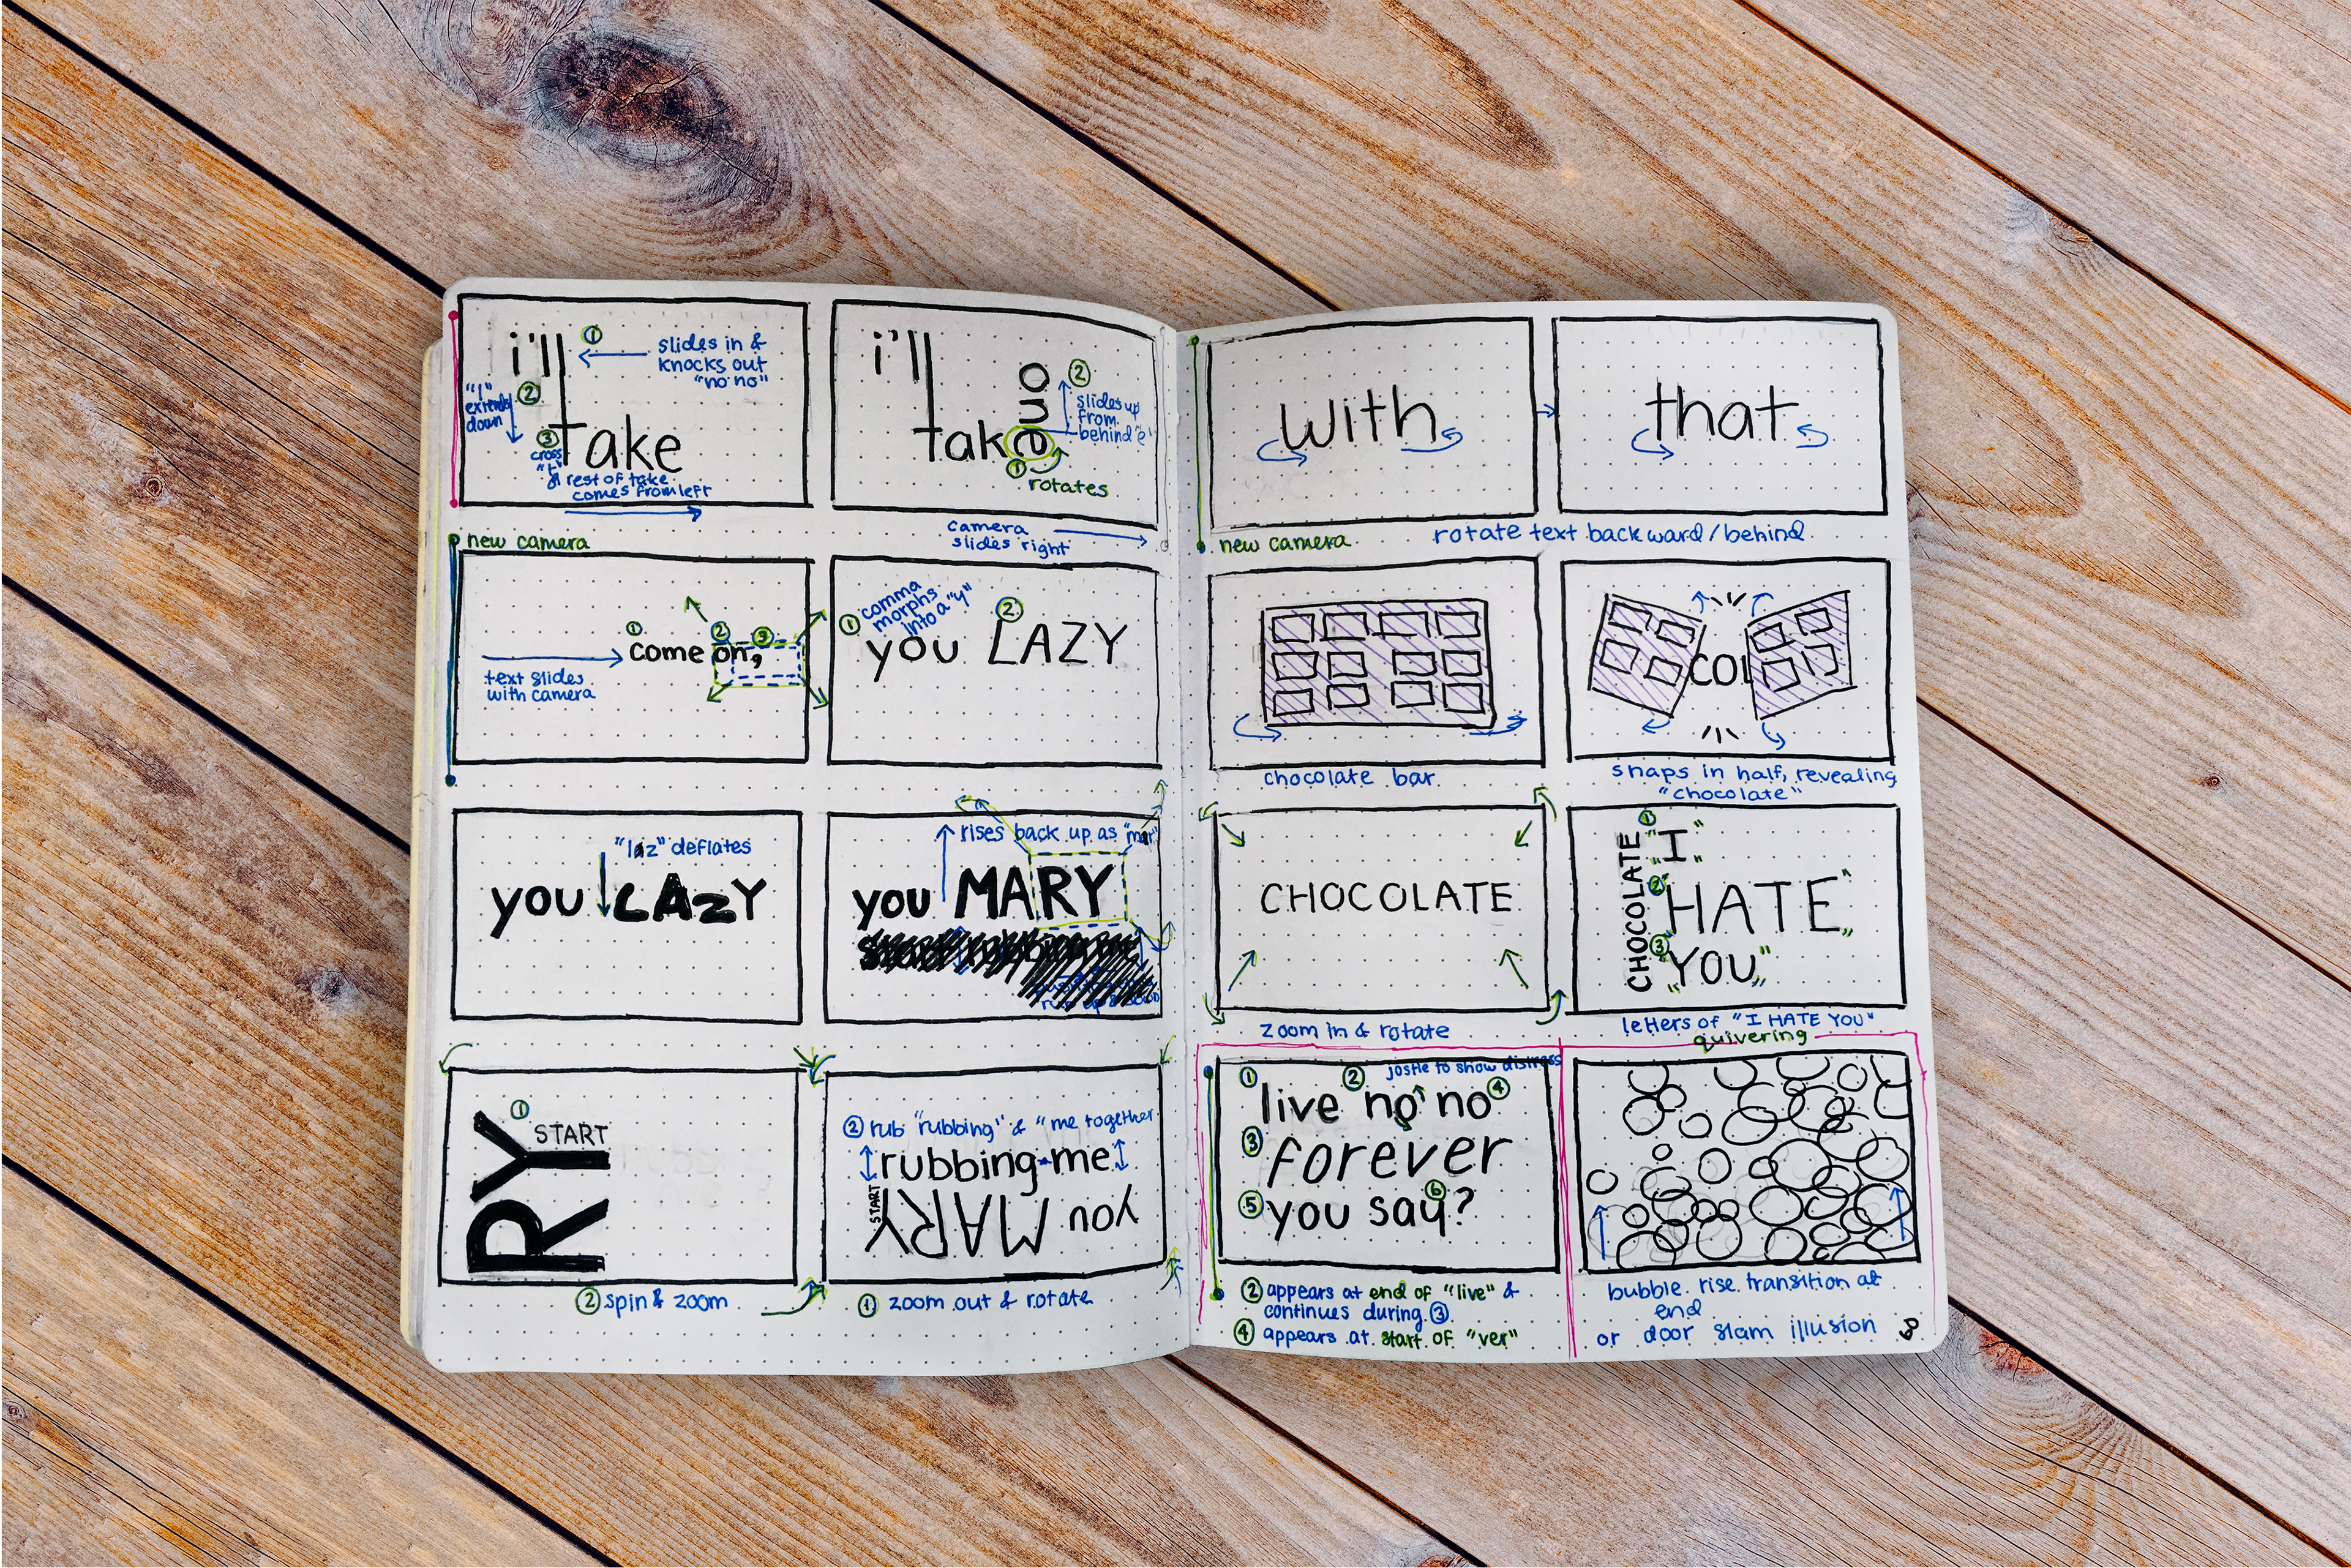 i'll
①
slides in &
knocks out
"no no"
"l"
extends
down
②
③
cross
"t"
& rest of take
comes from left
take
i'll
one
②
slides up
from
behind "e"
take
①
rotates
camera
slides right
new camera
①
②
③
come on,
text slides
with camera
①
comma
morphs
into a "y"
②
you LAZY
"laz" deflates
you LAZY
rises back up as "mar"
you MARY
①
START
RY
② spin & zoom
② rub "rubbing" & "me together
rubbing me
START
you MARY
① zoom out & rotate
with
that
new camera
rotate text backward/behind
chocolate bar
COL
snaps in half, revealing
"chocolate"
CHOCOLATE
zoom in & rotate
CHOCOLATE
①
I
②
HATE
③
YOU
letters of "I HATE YOU"
quivering
jostle to show distress
① ② ④
live no no
③ forever
⑤ ⑥
you say?
② appears at end of "live" &
continues during ③
④ appears at start of "ver"
bubble rise transition at
end
or door slam illusion